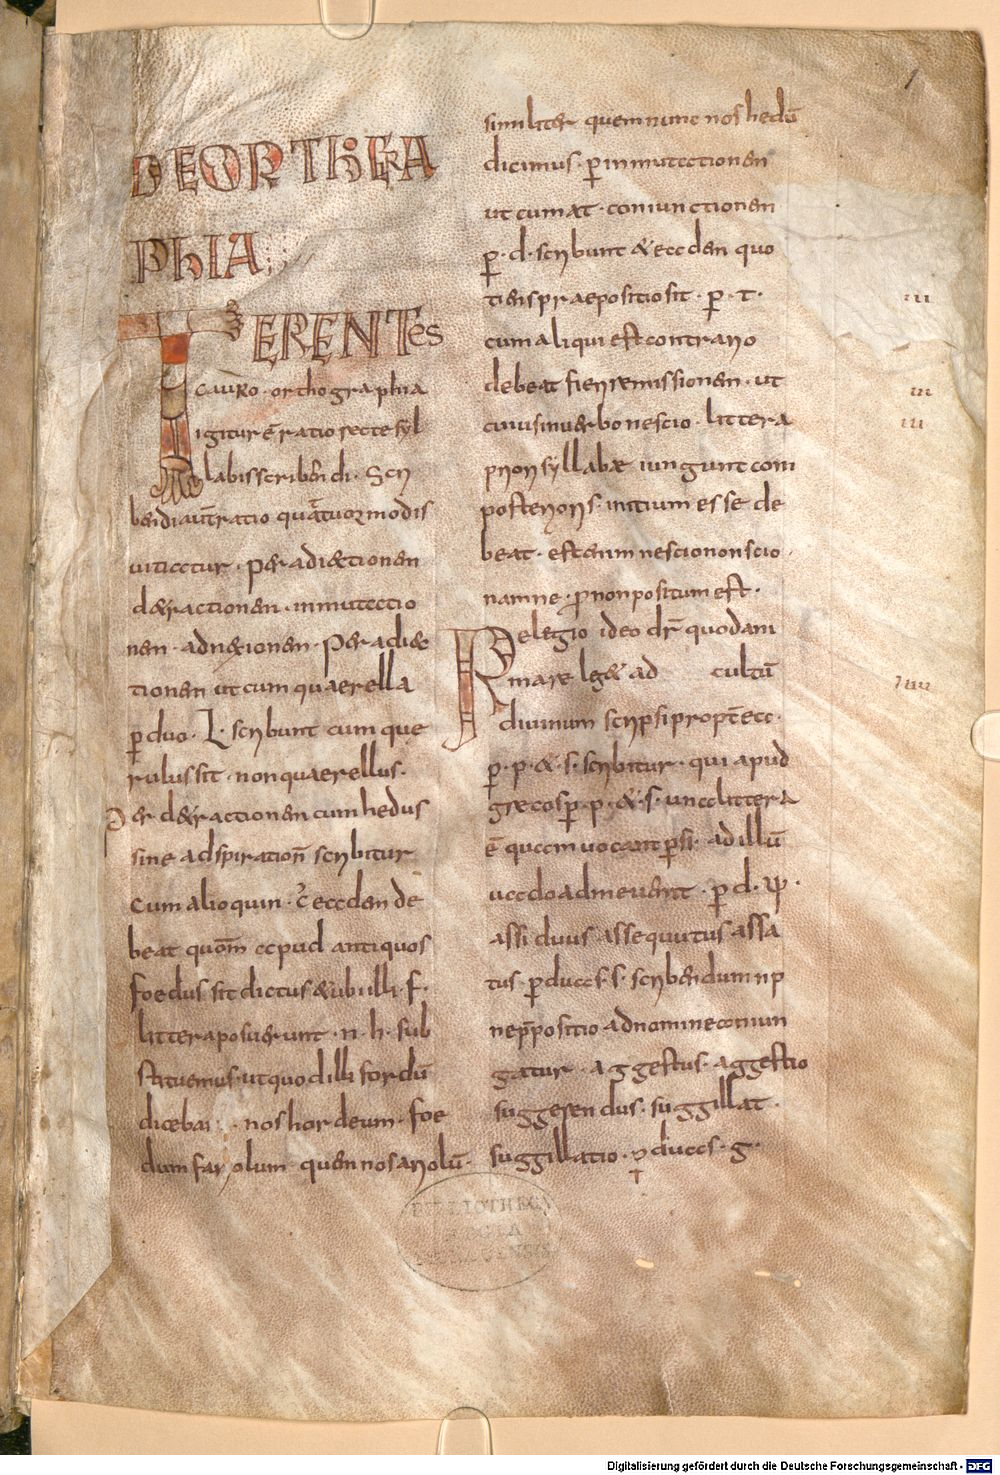 DE ORTHGRA
PHIA
TERENTES
cauro · orthographia
igitur ē ratio recte syl
labis scribendi · Scri
bendi aut ratio quattuor modis
uitiatur · per adiectionem
detractionem · inmutatio
nem · adnexionem · Per adiec
tionem ut cum quaerella
p duo · L · scribunt cum que
rulus sit · non quaerellus ·
Per detractionem cum hedus
sine adspiration̄ scribitur
cum alioquin · c̄ eadem de
beat quom̄ apud antiquos
foedus sit dictus & ubi illi · f ·
litteraposuerunt · n · h · sub
stituemus · ut quod illi fordū
dicebant · nos hordeum · foe
dum fariolum · quem nos ariolū ·
similiter quem nunc nos hedū
dicimus · p inmutationem
ut cum at · coniunctionem
p · d · scribunt & eadem quo
tiens praepositio sit · p · t ·
cum aliqui est contrario
debeat fieri remissionem · ut
cuius in uerbo nescio · littera
prior syllabae iungunt com
posterioris · initium esse de
beat · est enim nescio non scio ·
nam ne · p non positum est ·
Relegio ideo dr̄ quod am
mare leg& ad cultū
diuinum scripsi propt̄ea ·
p · p · & · s · scribitur · qui apud
grecos p · p · & · s · una littera
ē quam uocant psi · ad illū
uado admeuent · p d · ip ·
assiduus assequutus assa
tus · p duas · s · scribendum np
nep̄positio ad nomine coniun
gatur · aggestus · aggestio
suggerendus · suggillat ·
suggillatio · p duas · g ·
Digitalisierung gefördert durch die Deutsche Forschungsgemeinschaft - DFG